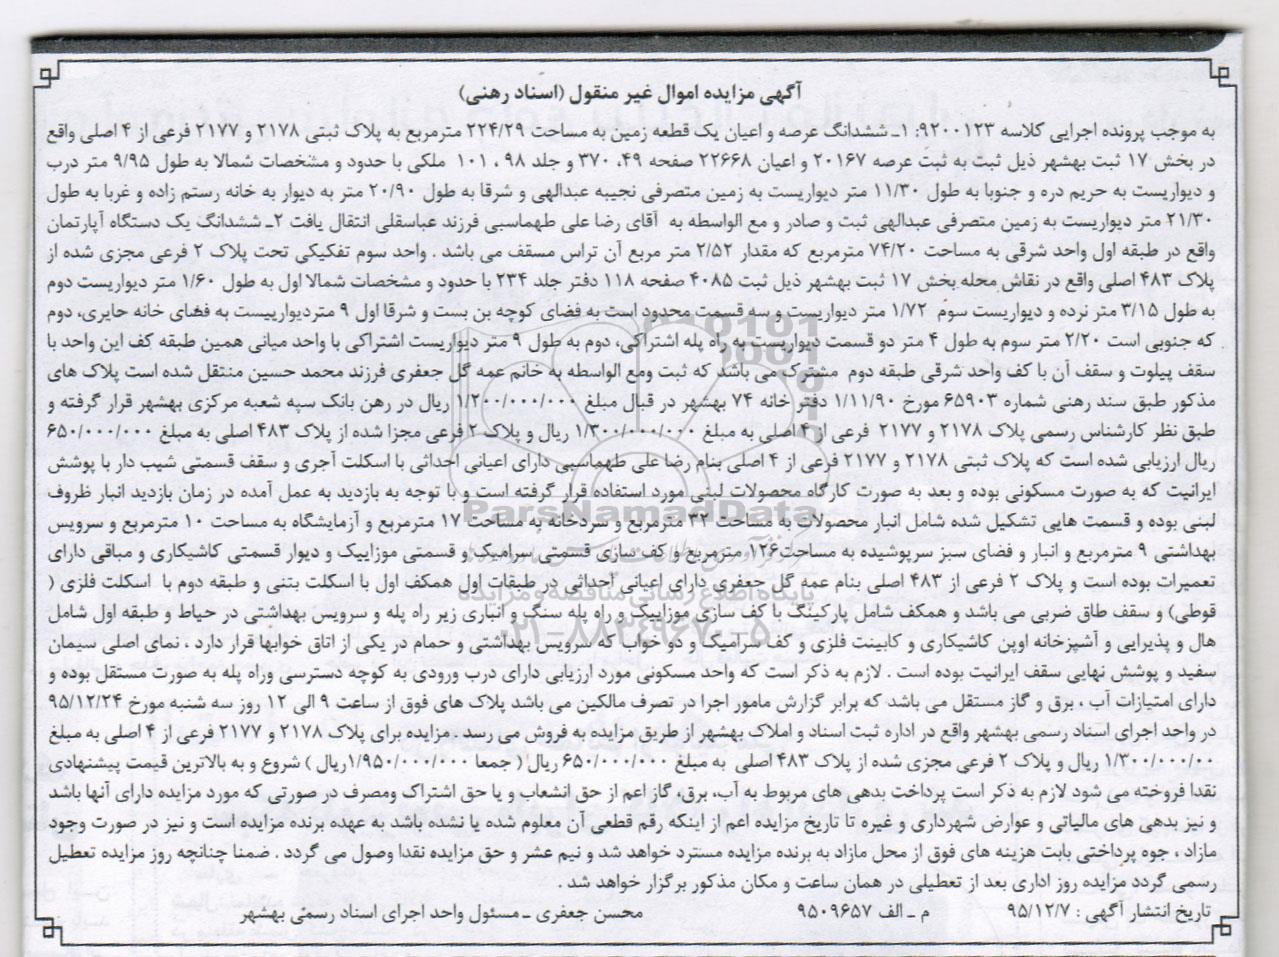 آگهی مزایده اموال غیر منقول (اسناد رهنی)
به موجب پرونده اجرایی کلاسه ۹۲۰۰۱۲۳: ۱ـ ششدانگ عرصه و اعیان یک قطعه زمین به مساحت ۲۲۴/۲۹ مترمربع به پلاک ثبتی ۲۱۷۸ و ۲۱۷۷ فرعی از ۴ اصلی واقع
در بخش ۱۷ ثبت بهشهر ذیل ثبت به ثبت عرصه ۲۰۱۶۷ و اعیان ۲۲۶۶۸ صفحه ۴۹، ۳۷۰ و جلد ۹۸ ، ۱۰۱ ملکی با حدود و مشخصات شمالا به طول ۹/۹۵ متر درب
و دیواریست به حریم دره و جنوبا به طول ۱۱/۳۰ متر دیواریست به زمین متصرفی نجیبه عبدالهی و شرقا به طول ۲۰/۹۰ متر به دیوار به خانه رستم زاده و غربا به طول
۲۱/۳۰ متر دیواریست به زمین متصرفی عبدالهی ثبت و صادر و مع الواسطه به آقای رضا علی طهماسبی فرزند عباسقلی انتقال یافت ۲ـ ششدانگ یک دستگاه آپارتمان
واقع در طبقه اول واحد شرقی به مساحت ۷۴/۲۰ مترمربع که مقدار ۲/۵۲ متر مربع آن تراس مسقف می باشد . واحد سوم تفکیکی تحت پلاک ۲ فرعی مجزی شده از
پلاک ۴۸۳ اصلی واقع در نقاش محله بخش ۱۷ ثبت بهشهر ذیل ثبت ۴۰۸۵ صفحه ۱۱۸ دفتر جلد ۲۳۴ با حدود و مشخصات شمالا اول به طول ۱/۶۰ متر دیواریست دوم
به طول ۳/۱۵ متر نرده و دیواریست سوم ۱/۷۲ متر دیواریست و سه قسمت محدود است به فضای کوچه بن بست و شرقا اول ۹ متردیوارییست به فضای خانه حایری، دوم
که جنوبی است ۲/۲۰ متر سوم به طول ۴ متر دو قسمت دیواریست به راه پله اشتراکی، دوم به طول ۹ متر دیواریست اشتراکی با واحد میانی همین طبقه کف این واحد با
سقف پیلوت و سقف آن با کف واحد شرقی طبقه دوم مشترک می باشد که ثبت ومع الواسطه به خانم عمه گل جعفری فرزند محمد حسین منتقل شده است پلاک های
مذکور طبق سند رهنی شماره ۶۵۹۰۳ مورخ ۱/۱۱/۹۰ دفتر خانه ۷۴ بهشهر در قبال مبلغ ۱/۲۰۰/۰۰۰/۰۰۰ ریال در رهن بانک سپه شعبه مرکزی بهشهر قرار گرفته و
طبق نظر کارشناس رسمی پلاک ۲۱۷۸ و ۲۱۷۷ فرعی از ۴ اصلی به مبلغ ۱/۳۰۰/۰۰۰/۰۰۰ ریال و پلاک ۲ فرعی مجزا شده از پلاک ۴۸۳ اصلی به مبلغ ۶۵۰/۰۰۰/۰۰۰
ریال ارزیابی شده است که پلاک ثبتی ۲۱۷۸ و ۲۱۷۷ فرعی از ۴ اصلی بنام رضا علی طهماسبی دارای اعیانی احداثی با اسکلت آجری و سقف قسمتی شیب دار با پوشش
ایرانیت که به صورت مسکونی بوده و بعد به صورت کارگاه محصولات لبنی مورد استفاده قرار گرفته است و با توجه به بازدید به عمل آمده در زمان بازدید انبار ظروف
لبنی بوده و قسمت هایی تشکیل شده شامل انبار محصولات به مساحت ۳۲ مترمربع و سردخانه به مساحت ۱۷ مترمربع و آزمایشگاه به مساحت ۱۰ مترمربع و سرویس
بهداشتی ۹ مترمربع و انبار و فضای سبز سرپوشیده به مساحت۱۲۶ مترمربع و کف سازی قسمتی سرامیک و قسمتی موزاییک و دیوار قسمتی کاشیکاری و مباقی دارای
تعمیرات بوده است و پلاک ۲ فرعی از ۴۸۳ اصلی بنام عمه گل جعفری دارای اعیانی احداثی در طبقات اول همکف اول با اسکلت بتنی و طبقه دوم با اسکلت فلزی (
قوطی) و سقف طاق ضربی می باشد و همکف شامل پارکینگ با کف سازی موزاییک و راه پله سنگ و انباری زیر راه پله و سرویس بهداشتی در حیاط و طبقه اول شامل
هال و پذیرایی و آشپزخانه اوپن کاشیکاری و کابینت فلزی و کف سرامیک و دو خواب که سرویس بهداشتی و حمام در یکی از اتاق خوابها قرار دارد ، نمای اصلی سیمان
سفید و پوشش نهایی سقف ایرانیت بوده است . لازم به ذکر است که واحد مسکونی مورد ارزیابی دارای درب ورودی به کوچه دسترسی وراه پله به صورت مستقل بوده و
دارای امتیازات آب ، برق و گاز مستقل می باشد که برابر گزارش مامور اجرا در تصرف مالکین می باشد پلاک های فوق از ساعت ۹ الی ۱۲ روز سه شنبه مورخ ۹۵/۱۲/۲۴
در واحد اجرای اسناد رسمی بهشهر واقع در اداره ثبت اسناد و املاک بهشهر از طریق مزایده به فروش می رسد . مزایده برای پلاک ۲۱۷۸ و ۲۱۷۷ فرعی از ۴ اصلی به مبلغ
۱/۳۰۰/۰۰۰/۰۰ ریال و پلاک ۲ فرعی مجزی شده از پلاک ۴۸۳ اصلی به مبلغ ۶۵۰/۰۰۰/۰۰۰ ریال ( جمعا ۱/۹۵۰/۰۰۰/۰۰۰ریال ) شروع و به بالاترین قیمت پیشنهادی
نقدا فروخته می شود لازم به ذکر است پرداخت بدهی های مربوط به آب، برق، گاز اعم از حق انشعاب و یا حق اشتراک ومصرف در صورتی که مورد مزایده دارای آنها باشد
و نیز بدهی های مالیاتی و عوارض شهرداری و غیره تا تاریخ مزایده اعم از اینکه رقم قطعی آن معلوم شده یا نشده باشد به عهده برنده مزایده است و نیز در صورت وجود
مازاد ، جوه پرداختی بابت هزینه های فوق از محل مازاد به برنده مزایده مسترد خواهد شد و نیم عشر و حق مزایده نقدا وصول می گردد . ضمنا چنانچه روز مزایده تعطیل
رسمی گردد مزایده روز اداری بعد از تعطیلی در همان ساعت و مکان مذکور برگزار خواهد شد .
تاریخ انتشار آگهی : ۹۵/۱۲/۷ م ـ الف ۹۵۰۹۶۵۷ محسن جعفری ـ مسئول واحد اجرای اسناد رسمتی بهشهر
ParsNamadData
پایگاه اطلاع رسانی مناقصه و مزایده
۰۲۱-۸۸۳۴۹۶۷۰-۵